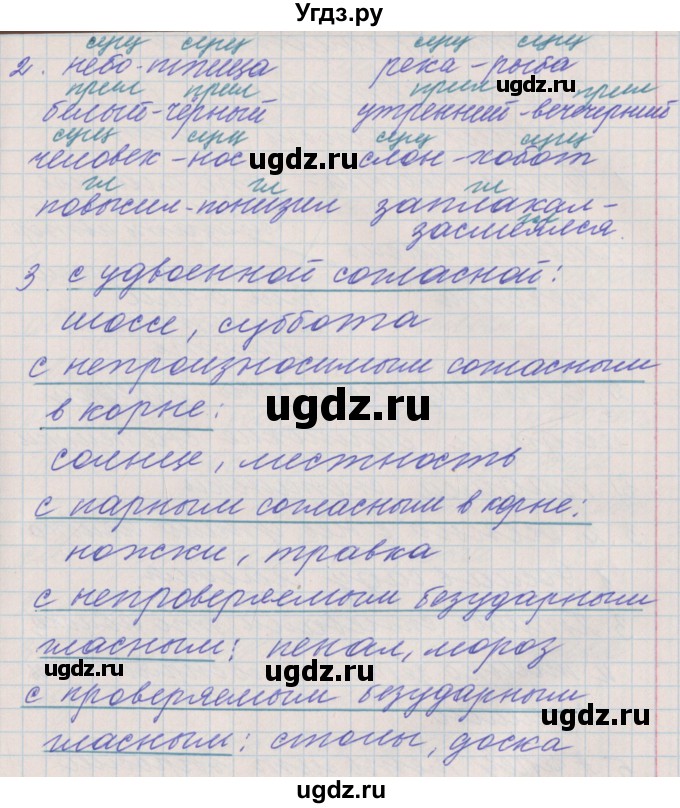 Угдз.ру
сущ сущ сущ сущ
2. небо-птица река-рыба
прил прил прил прил
белый-черный утренний-вечерний
сущ сущ сущ сущ
человек-нос слон-хобот
ugdz.ru
гл гл гл
повысил-понизил заплакал-
ugdz.ru ugdz.ru
гл
засмеялся.
3. с удвоенной согласной:
шоссе, суббота
с непроизносимым согласным
ugdz.ru
в корне:
солнце, местность
с парным согласным в корне:
ugdz.ru
ножки, травка
с непроверяемым безударным
гласным: пенал, мороз
ugdz.ru ugdz.ru
с проверяемым безударным
ugdz.ru
гласным: столы, доска
ugdz.ru